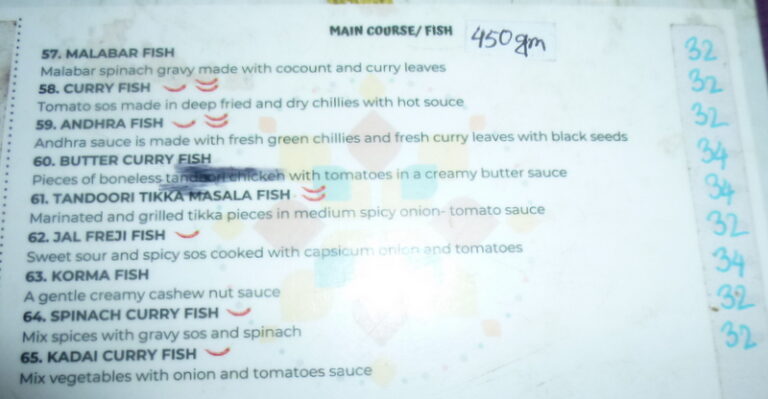 MAIN COURSE/ FISH 450gm
57. MALABAR FISH 32
Malabar spinach gravy made with cocount and curry leaves
58. CURRY FISH 32
Tomato sos made in deep fried and dry chillies with hot souce
59. ANDHRA FISH 32
Andhra sauce is made with fresh green chillies and fresh curry leaves with black seeds
60. BUTTER CURRY FISH 34
Pieces of boneless tandoori chicken with tomatoes in a creamy butter sauce
61. TANDOORI TIKKA MASALA FISH 34
Marinated and grilled tikka pieces in medium spicy onion- tomato sauce
62. JAL FREJI FISH 32
Sweet sour and spicy sos cooked with capsicum onion and tomatoes
63. KORMA FISH 34
A gentle creamy cashew nut sauce
64. SPINACH CURRY FISH 32
Mix spices with gravy sos and spinach
65. KADAI CURRY FISH 32
Mix vegetables with onion and tomatoes sauce